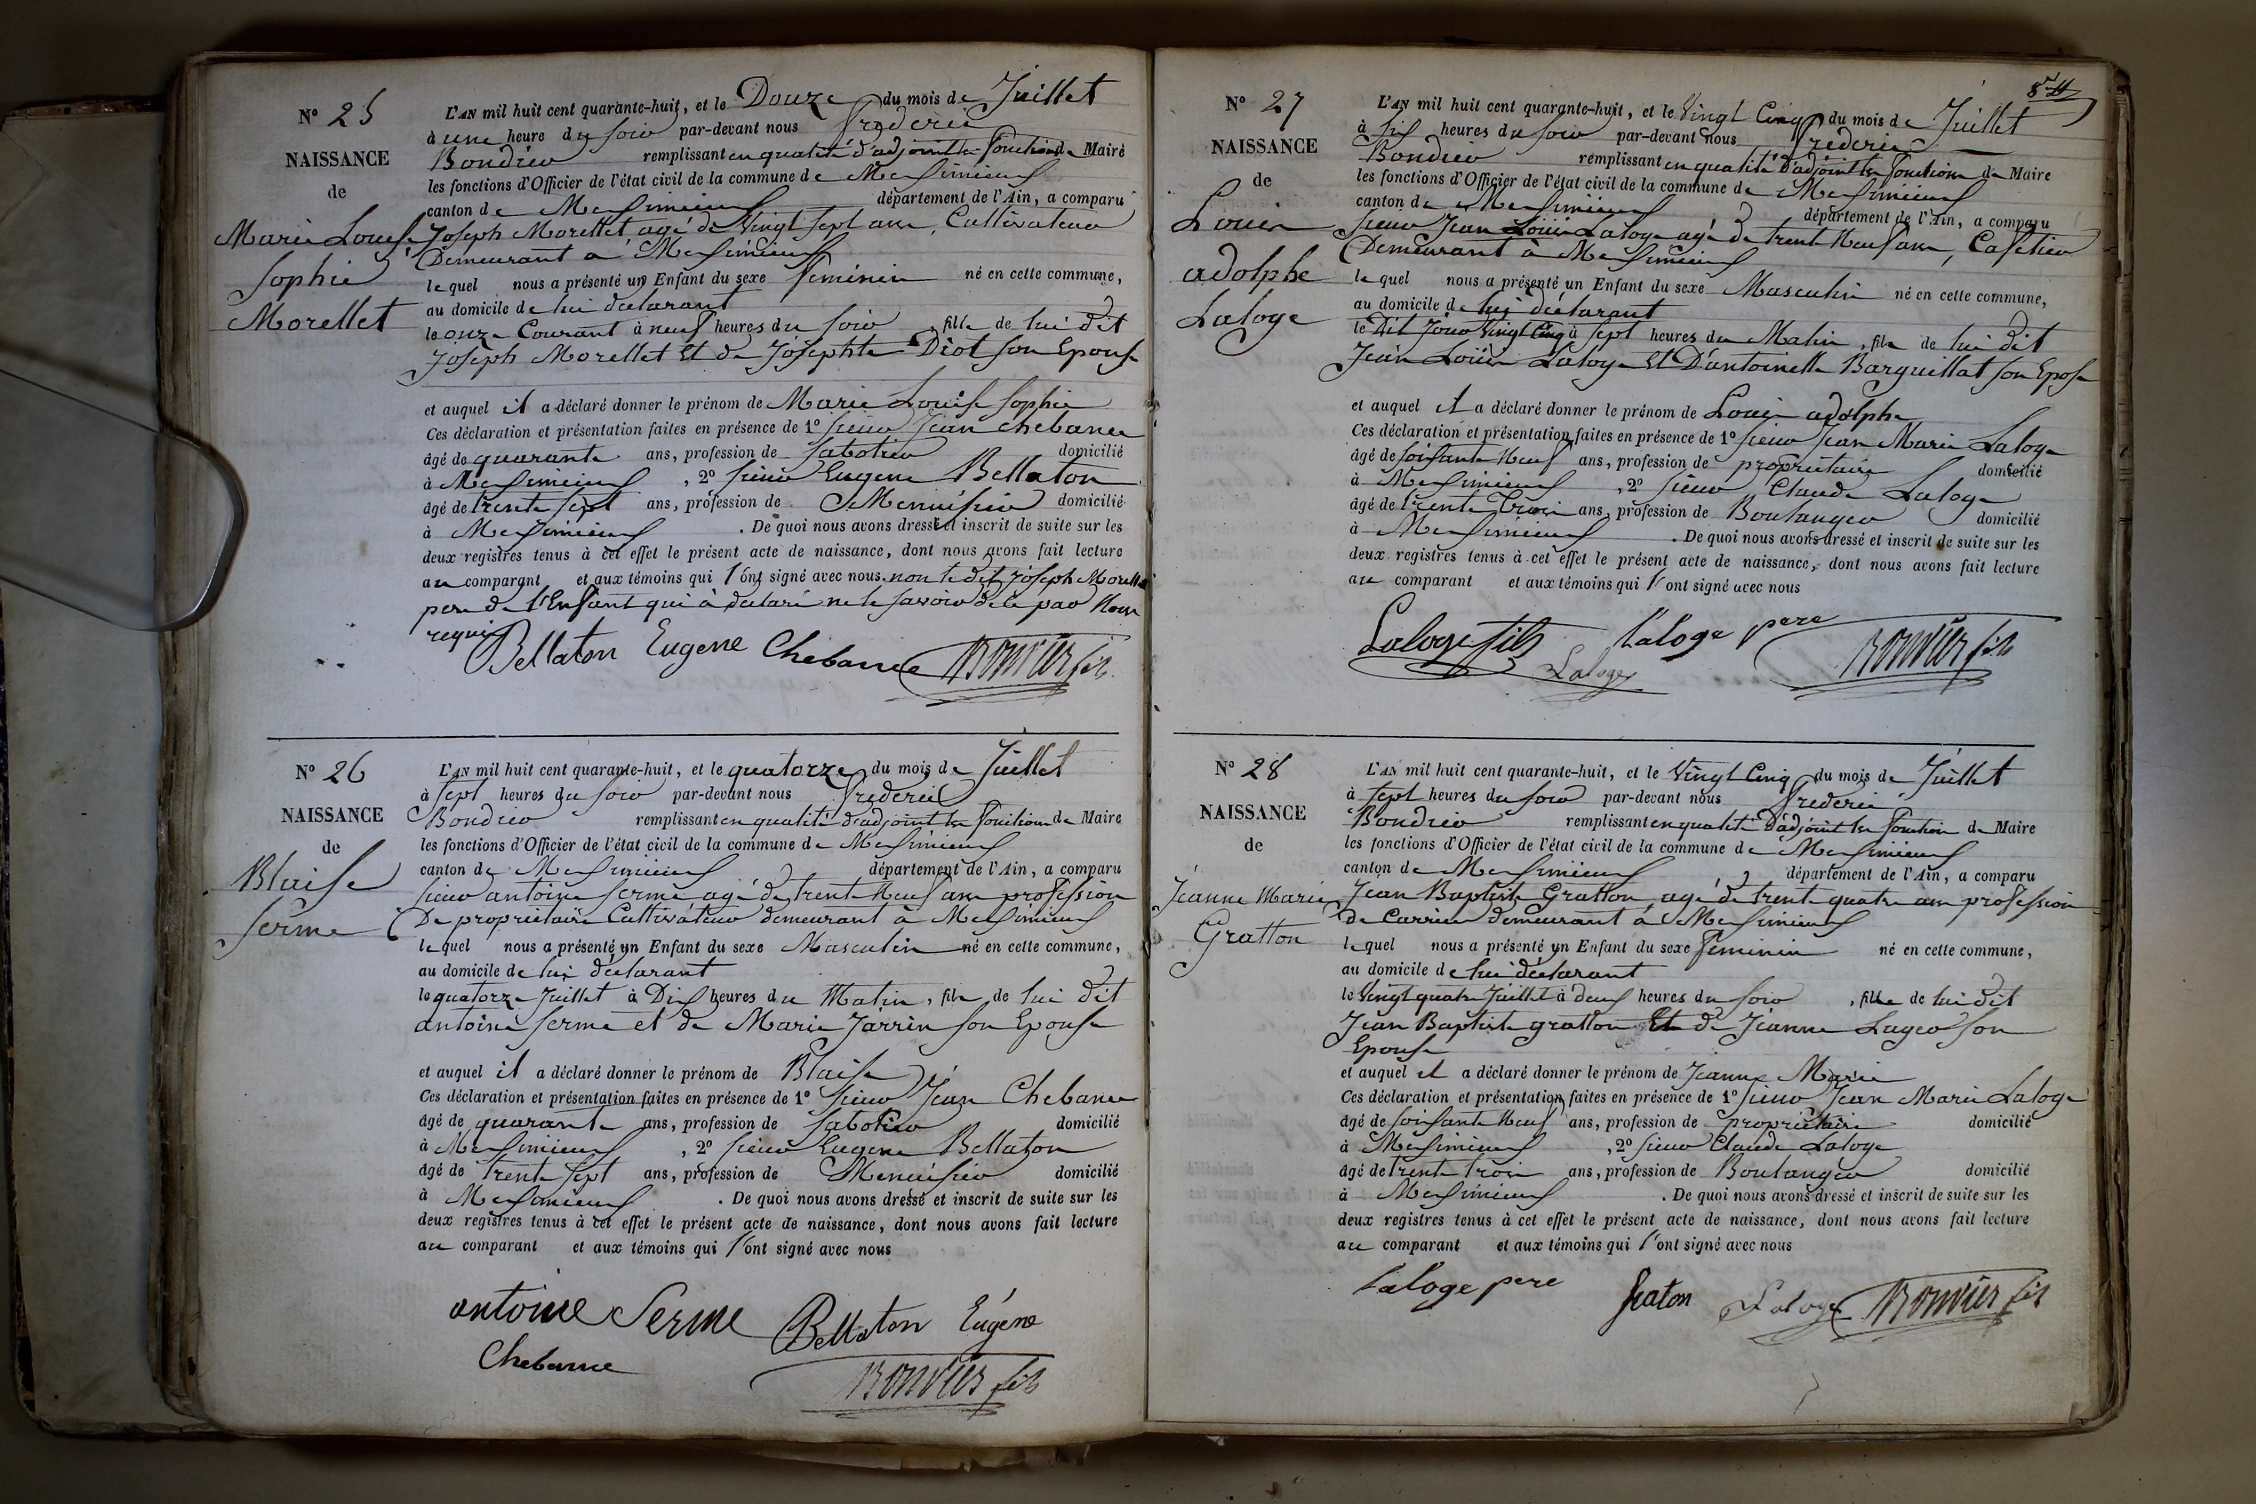 N° 25
NAISSANCE
de
Marie Louise
Sophie
Morellet
L'AN mil huit cent quarante-huit, et le Douze du mois de Juillet
à une heure du soir par-devant nous frederic
Bondier remplissant en qualité d'adjoint les fonctions de Maire
les fonctions d'Officier de l'état civil de la commune de Meximieux
canton de Meximieux département de l'Ain, a comparu
Joseph Morellet agé de Vingt sept ans, Cultivateur
Demeurant à Meximieux
lequel nous a présenté un Enfant du sexe feminin né en cette commune,
au domicile de lui déclarant
le onze Courant à neuf heures du soir, fille de lui dit
Joseph Morellet Et de Josephte Diot son Epouse
et auquel il a déclaré donner le prénom de Marie Louise Sophie
Ces déclaration et présentation faites en présence de 1° sieur Jean Chebance
âgé de quarante ans, profession de sabotier domicilié
à Meximieux, 2° sieur Eugene Bellaton
âgé de trente sept ans, profession de Menuisier domicilié
à Meximieux. De quoi nous avons dressé et inscrit de suite sur les
deux registres tenus à cet effet le présent acte de naissance, dont nous avons fait lecture
au comparant et aux témoins qui l'ont signé avec nous non le dit Joseph Morellet
pere de l'Enfant qui à déclaré ne le savoir de ce par Nous
requis
Bellaton Eugene Chebance fils
N° 26
NAISSANCE
de
Blaise
Serme
L'AN mil huit cent quarante-huit, et le quatorze du mois de Juillet
à sept heures du soir par-devant nous frederic
Bondier remplissant en qualité d'adjoint les fonctions de Maire
les fonctions d'Officier de l'état civil de la commune de Meximieux
canton de Meximieux département de l'Ain, a comparu
sieur antoine serme agé de trente Neuf ans profession
De propriétaire Cultivateur demeurant à Meximieux
lequel nous a présenté un Enfant du sexe Masculin né en cette commune,
au domicile de lui déclarant
le quatorze Juillet à Dix heures du Matin, fils de lui dit
antoine serme et de Marie Jarrin son Epouse
et auquel il a déclaré donner le prénom de Blaise
Ces déclaration et présentation faites en présence de 1° sieur Jean Chebance
âgé de quarante ans, profession de sabotier domicilié
à Meximieux, 2° sieur Eugene Bellaton
âgé de trente sept ans, profession de Menuisier domicilié
à Meximieux. De quoi nous avons dressé et inscrit de suite sur les
deux registres tenus à cet effet le présent acte de naissance, dont nous avons fait lecture
au comparant et aux témoins qui l'ont signé avec nous
antoine Serme Bellaton Eugéne
Chebance
fils
N° 27
NAISSANCE
de
Louis
adolphe
Laloge
L'AN mil huit cent quarante-huit, et le Vingt Cinq du mois de Juillet
à six heures du soir par-devant nous frederic
Bondier remplissant en qualité d'adjoint les fonctions de Maire
les fonctions d'Officier de l'état civil de la commune de Meximieux
canton de Meximieux département de l'Ain, a comparu
sieur Jean Louis Laloge agé de trente Neuf ans, Cafetier
Demeurant à Meximieux
lequel nous a présenté un Enfant du sexe Masculin né en cette commune,
au domicile de lui déclarant
le Dit Jour Vingt Cinq à sept heures du Matin, fils de lui dit
Jean Louis Laloge Et D'antoinette Barguillat son Epose
et auquel il a déclaré donner le prénom de Louis adolphe
Ces déclaration et présentation faites en présence de 1° sieur Jean Marie Laloge
âgé de soixante Neuf ans, profession de propriétaire domicilié
à Meximieux, 2° sieur Claude Laloge
âgé de trente trois ans, profession de Boulanger domicilié
à Meximieux. De quoi nous avons dressé et inscrit de suite sur les
deux registres tenus à cet effet le présent acte de naissance, dont nous avons fait lecture
au comparant et aux témoins qui l'ont signé avec nous
Laloge fils Laloge pere fils
Laloge
N° 28
NAISSANCE
de
Jeanne Marie
Gratton
L'AN mil huit cent quarante-huit, et le Vingt Cinq du mois de Juillet
à sept heures du soir par-devant nous frederic
Bondier remplissant en qualité D'adjoint les fonction de Maire
les fonctions d'Officier de l'état civil de la commune de Meximieux
canton de Meximieux département de l'Ain, a comparu
Jean Baptiste Gratton, agé de trente quatre ans profession
de Carrier demeurant à Meximieux
lequel nous a présenté un Enfant du sexe feminin né en cette commune,
au domicile de lui déclarant
le Vingt quatre Juillet à deux heures du soir, fille de lui dit
Jean Baptiste gratton Et de Jeanne Lager son
Epouse
et auquel il a déclaré donner le prénom de Jeanne Marie
Ces déclaration et présentation faites en présence de 1° sieur Jean Marie Laloge
âgé de soixante Neuf ans, profession de propriétaire domicilié
à Meximieux, 2° sieur Claude Laloge
âgé de trente trois ans, profession de Boulanger domicilié
à Meximieux. De quoi nous avons dressé et inscrit de suite sur les
deux registres tenus à cet effet le présent acte de naissance, dont nous avons fait lecture
au comparant et aux témoins qui l'ont signé avec nous
Laloge pere Graton Laloge fils